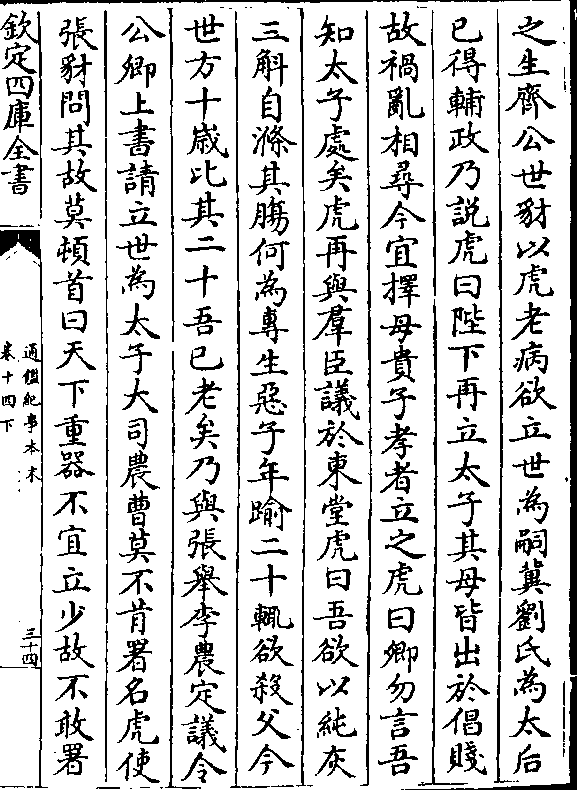 之生齊公世豺以虎老病欲立世為嗣冀劉氏為太后
已得輔政乃説虎曰陛下再立太子其母皆出於倡賤
故禍亂相尋今宜擇母貴子孝者立之虎曰卿勿言吾
知太子處矣虎再與羣臣議於東堂虎曰吾欲以純灰
三斛自滌其腸何為專生惡子年踰二十輒欲殺父今
世方十歳比其二十吾已老矣乃與張舉李農定議令
公卿上書請立世為太子大司農曹莫不肯署名虎使
張豺問其故莫頓首曰天下重器不宜立少故不敢署
欽定四庫全書
通鑑紀事本末
卷十四下
三十四